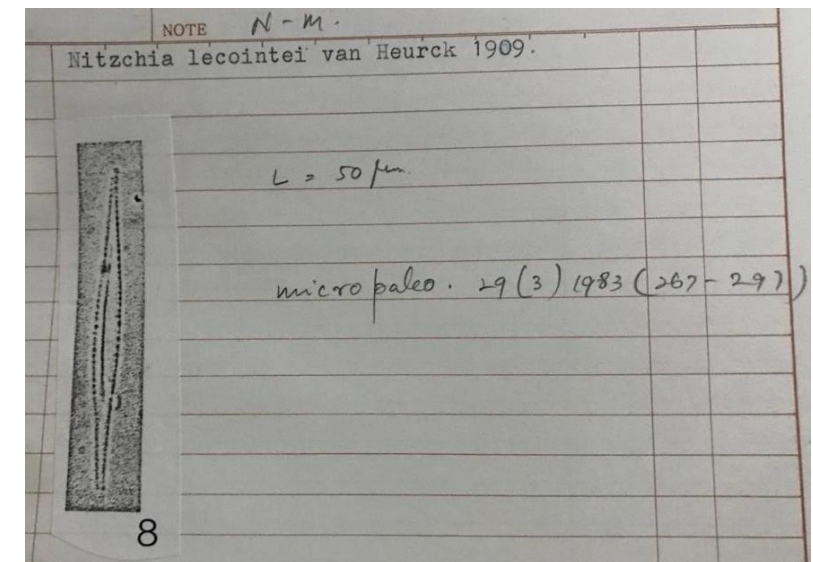 NOTE N-M.
Nitzchia lecointei van Heurck 1909.
L = 50 μm
micropaleo. 29(3) 1983 (267-297)
8